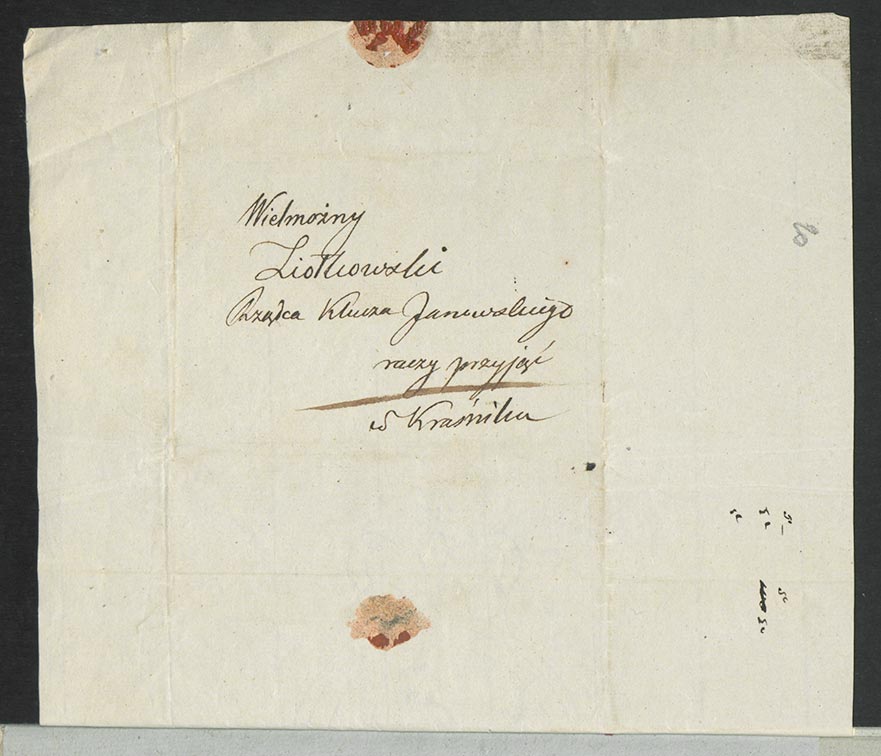 Wielmożny
Ziółkowski
Rządca Klucza Janowskiego
raczy przyjąć
w Kraśniku
20